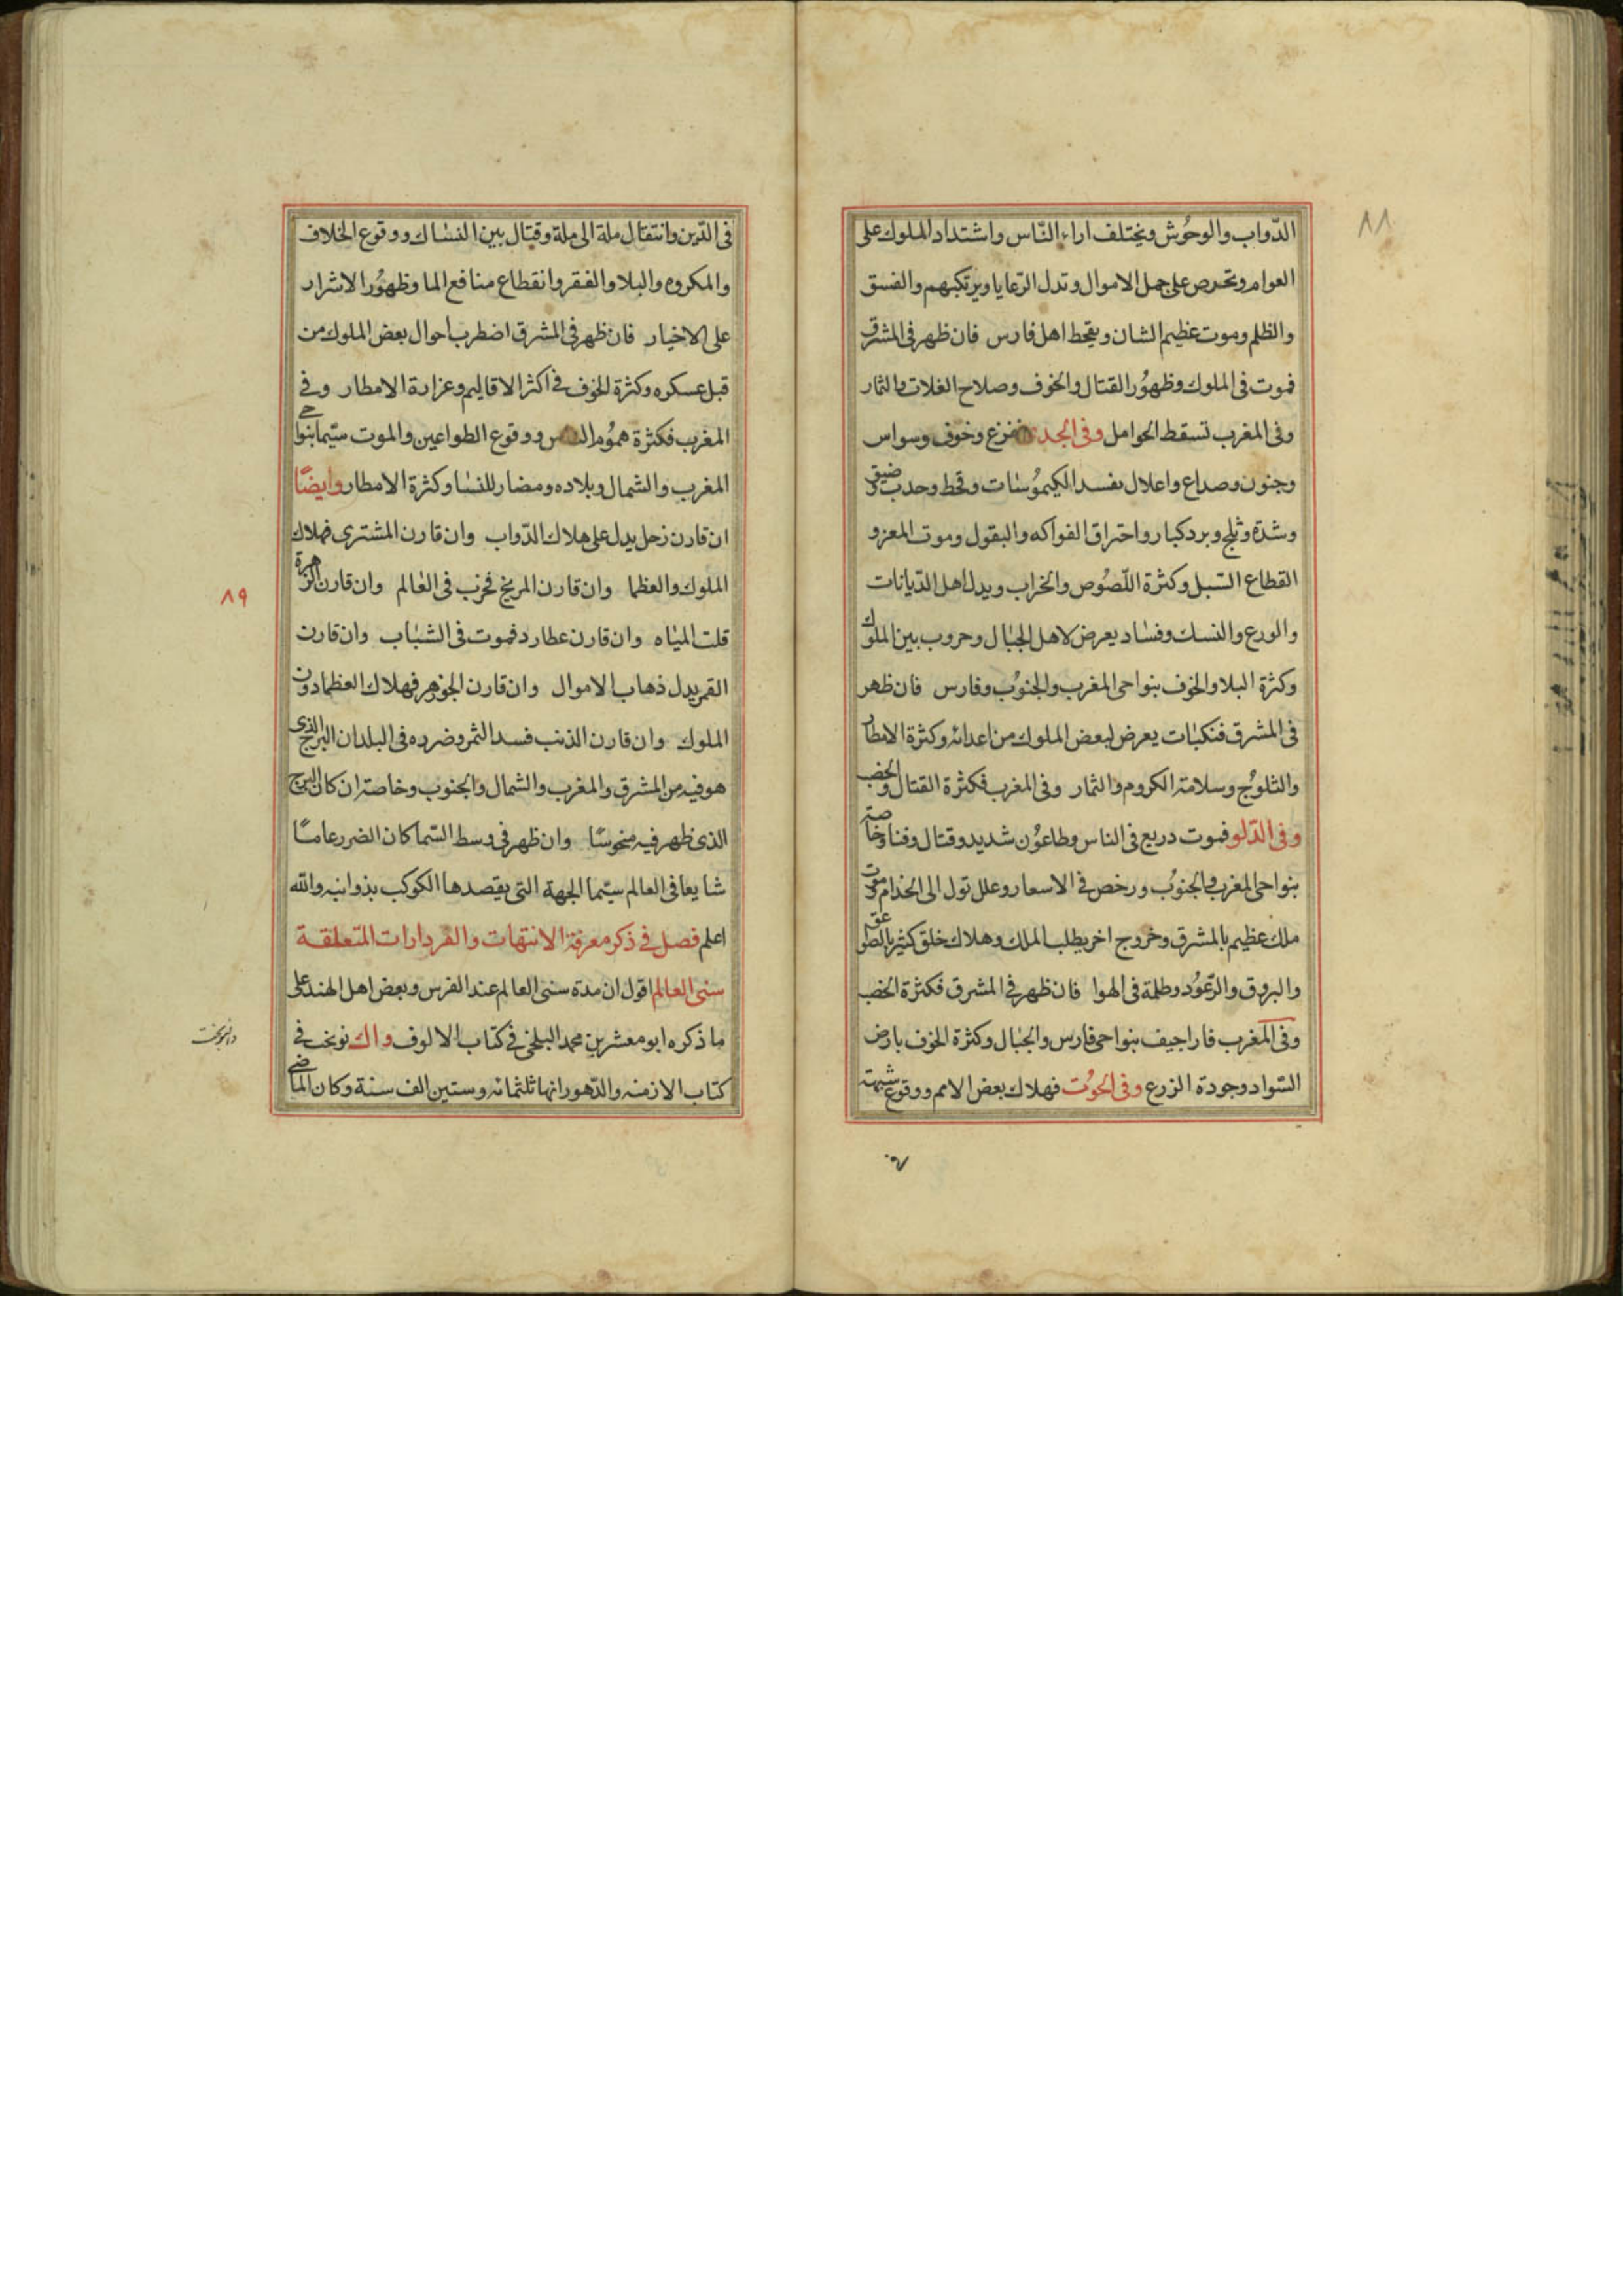 ٨٨
الدّواب والوحُوش ويختلف اراء النّاس واشتداد الملوك على
العوام وتحرص على حمل الاموال وتدل الرّعايا ويرتكبهم والفسق
والظلم وموت عظيم الشان ويقحط اهل فارس فان ظهر فى المشرق
فموت فى الملوك وظهوُر القتال والخوف وصلاح الغلات والثمار
وفى المغرب تسقط الحوامل وفى الجدى ففزع وخوف ووسواس
وجنون وصداع واعلال بفسد الكيموُسات وقحط وحدب وضيق
وشدّة وثلج وبرد كبار واحتراق الفواكه والبقول وموت المعز و
القطاع السّبل وكثرة اللّصُوص والخراب ويدل اهل الدّيانات
والورع والنسك وفساد يعرض لاهل الجبال وحروب بين الملوك
وكثرة البلا والخوف بنواحى المغرب والجنوُب وفارس فان ظهر
فى المشرق فنكبات يعرض لبعض الملوك من اعدائه وكثرة الامطار
والثلوُج وسلامة الكروم والثمار وفى المغرب فكثرة القتال والخصب
وفى الدّلو فموت دريع فى الناس وطاعوُن شديد وقتال وفنا وخاصة
بنواحى المغرب والجنوُب ورخص فى الاسعار وعلل تول الى الخدام وموت
ملك عظيم بالمشرق وخروج اخر يطلب الملك وهلاك خلق كثير بالصواعق
والبروق والرّعوُد وظلمة فى الهوا فان ظهر فى المشرق فكثرة الخصب
وفى المغرب فاراجيف بنواحى فارس والجبال وكثرة الخوف بارض
السّواد وجودة الزرع وفى الحوُت فهلاك بعض الامم ووقوع شبهة
فى الدّين وانتقال ملة الى ملة وقتال بين النساك ووقوع الخلاف
والمكروه والبلا والفقر وانقطاع منافع الما وظهوُر الاشرار
على الاخيار فان ظهر فى المشرق اضطرب احوال بعض الملوك من
قبل عسكره وكثرة الخوف فى اكثر الاقاليم وعزارة الامطار وفى
المغرب فكثرة هموُم الناس ووقوع الطواعين والموت سيّما بنواحى
المغرب والشمال وبلاده ومضار للنسا وكثرة الامطار وايضًا
ان قارن زحل يدل على هلاك الدّواب وان قارن المشترى فهلاك
الملوك والعظما وان قارن المريخ فحرب فى العالم وان قارن الزهرة
قلت المياه وان قارن عطارد فموت فى الشباب وان قارن
القمر يدل ذهاب الاموال وان قارن الجوزهر فهلاك العظما دون
الملوك وان قارن الذنب فسد الثمر وضرره فى البلدان البرج الذى
هو فيه من المشرق والمغرب والشمال والجنوب وخاصة ان كان البرج
الذى ظهر فيه منحوسًا وان ظهر فى وسط السّما كان الضرر عامًا
شايعا فى العالم سيّما الجهة التى يقصدها الكوكب بذوابته والله
اعلم فصل فى ذكر معرفة الانتهات والفردارات المتعلقة
سنى العالم اقول ان مدة سنى العالم عند الفرس وبعض اهل الهند على
ما ذكره ابو معشر بن محمد البلخى فى كتاب الالوف واك نوبخت فى
كتاب الازمنه والدّهور انها ثلثمائه وستين الف سنة وكان الماضى
٨٩